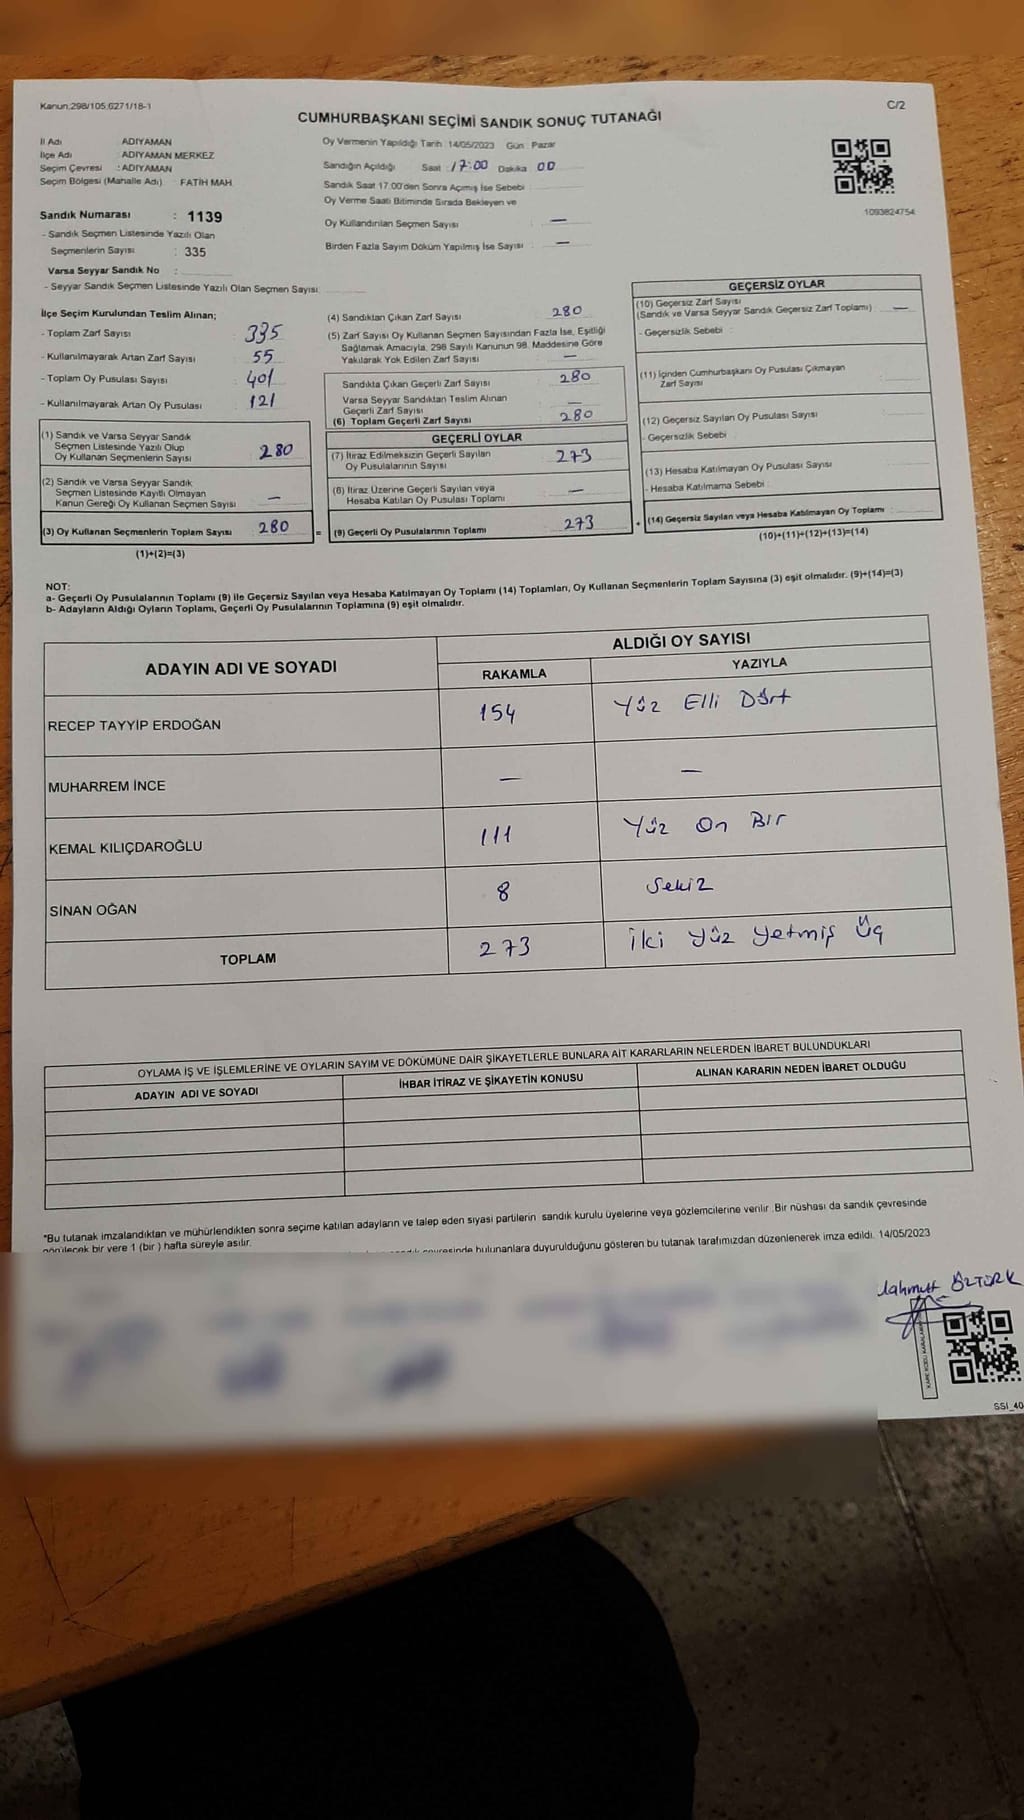 Kanun:298/105,6271/18-1
C/2
CUMHURBAŞKANI SEÇİMİ SANDIK SONUÇ TUTANAĞI
İl Adı ADIYAMAN
İlçe Adı : ADIYAMAN MERKEZ
Seçim Çevresi : ADIYAMAN
Seçim Bölgesi (Mahalle Adı) : FATİH MAH.
Sandık Numarası : 1139
- Sandık Seçmen Listesinde Yazılı Olan
Seçmenlerin Sayısı : 335
Varsa Seyyar Sandık No :
- Seyyar Sandık Seçmen Listesinde Yazılı Olan Seçmen Sayısı:
Oy Vermenin Yapıldığı Tarih : 14/05/2023 Gün : Pazar
Sandığın Açıldığı Saat : 17:00 Dakika 00
Sandık Saat 17.00'den Sonra Açımış İse Sebebi :
Oy Verme Saati Bitiminde Sırada Bekleyen ve
Oy Kullandırılan Seçmen Sayısı : —
Birden Fazla Sayım Döküm Yapılmış İse Sayısı : —
1093824754
İlçe Seçim Kurulundan Teslim Alınan;
- Toplam Zarf Sayısı : 335
- Kullanılmayarak Artan Zarf Sayısı : 55
- Toplam Oy Pusulası Sayısı : 401
- Kullanılmayarak Artan Oy Pusulası : 121
(1) Sandık ve Varsa Seyyar Sandık
Seçmen Listesinde Yazılı Olup
Oy Kullanan Seçmenlerin Sayısı 280
(2) Sandık ve Varsa Seyyar Sandık
Seçmen Listesinde Kayıtlı Olmayan
Kanun Gereği Oy Kullanan Seçmen Sayısı —
(3) Oy Kullanan Seçmenlerin Toplam Sayısı 280 =
(1)+(2)=(3)
(4) Sandıktan Çıkan Zarf Sayısı 280
(5) Zarf Sayısı Oy Kullanan Seçmen Sayısından Fazla İse, Eşitliği
Sağlamak Amacıyla, 298 Sayılı Kanunun 98. Maddesine Göre
Yakılarak Yok Edilen Zarf Sayısı —
Sandıkta Çıkan Geçerli Zarf Sayısı 280
Varsa Seyyar Sandıktan Teslim Alınan
Geçerli Zarf Sayısı —
(6) Toplam Geçerli Zarf Sayısı 280
GEÇERLİ OYLAR
(7) İtiraz Edilmeksizin Geçerli Sayılan
Oy Pusulalarının Sayısı 273
(8) İtiraz Üzerine Geçerli Sayılan veya
Hesaba Katılan Oy Pusulası Toplamı —
(9) Geçerli Oy Pusulalarının Toplamı 273 +
GEÇERSİZ OYLAR
(10) Geçersiz Zarf Sayısı
(Sandık ve Varsa Seyyar Sandık Geçersiz Zarf Toplamı) : —
- Geçersizlik Sebebi :
(11) İçinden Cumhurbaşkanı Oy Pusulası Çıkmayan
Zarf Sayısı
(12) Geçersiz Sayılan Oy Pusulası Sayısı
- Geçersizlik Sebebi :
(13) Hesaba Katılmayan Oy Pusulası Sayısı
- Hesaba Katılmama Sebebi :
(14) Geçersiz Sayılan veya Hesaba Katılmayan Oy Toplamı :
(10)+(11)+(12)+(13)=(14)
NOT:
a- Geçerli Oy Pusulalarının Toplamı (9) ile Geçersiz Sayılan veya Hesaba Katılmayan Oy Toplamı (14) Toplamları, Oy Kullanan Seçmenlerin Toplam Sayısına (3) eşit olmalıdır. (9)+(14)=(3)
b- Adayların Aldığı Oyların Toplamı, Geçerli Oy Pusulalarının Toplamına (9) eşit olmalıdır.
ADAYIN ADI VE SOYADI
ALDIĞI OY SAYISI
RAKAMLA YAZIYLA
RECEP TAYYİP ERDOĞAN 154 Yüz Elli Dört
MUHARREM İNCE — —
KEMAL KILIÇDAROĞLU 111 Yüz On Bir
SİNAN OĞAN 8 Sekiz
TOPLAM 273 İki Yüz Yetmiş Üç
OYLAMA İŞ VE İŞLEMLERİNE VE OYLARIN SAYIM VE DÖKÜMÜNE DAİR ŞİKAYETLERLE BUNLARA AİT KARARLARIN NELERDEN İBARET BULUNDUKLARI
ADAYIN ADI VE SOYADI İHBAR İTİRAZ VE ŞİKAYETİN KONUSU ALINAN KARARIN NEDEN İBARET OLDUĞU
*Bu tutanak imzalandıktan ve mühürlendikten sonra seçime katılan adayların ve talep eden siyasi partilerin sandık kurulu üyelerine veya gözlemcilerine verilir. Bir nüshası da sandık çevresinde
görülecek bir yere 1 (bir ) hafta süreyle asılır.
bulunanlara duyurulduğunu gösteren bu tutanak tarafımızdan düzenlenerek imza edildi. 14/05/2023
Mahmut ÖZTÜRK
SSI_40